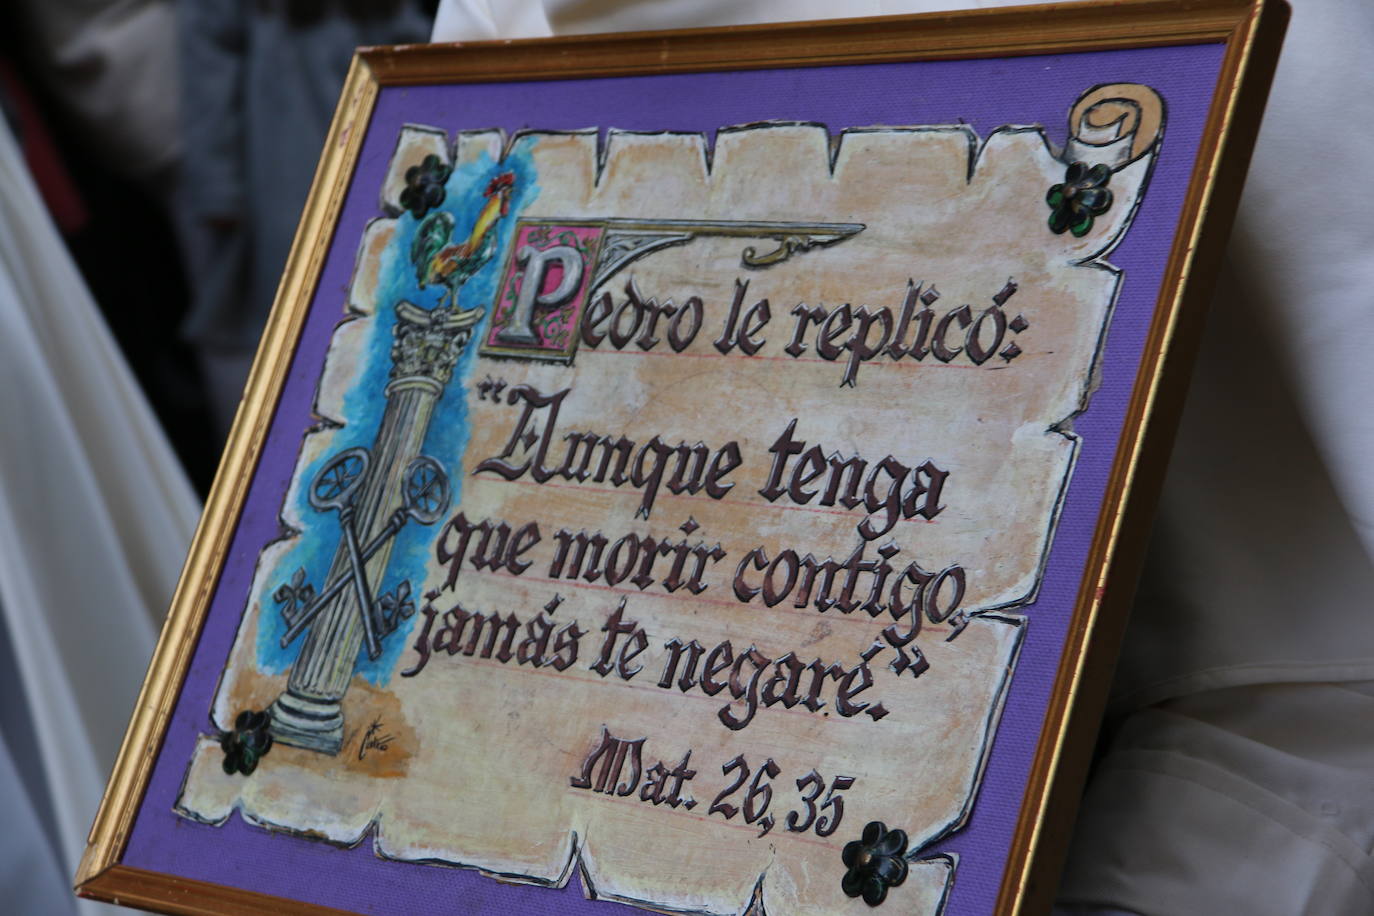 Pedro le replicó:
"Aunque tenga
que morir contigo,
jamás te negaré."
Mat. 26, 35